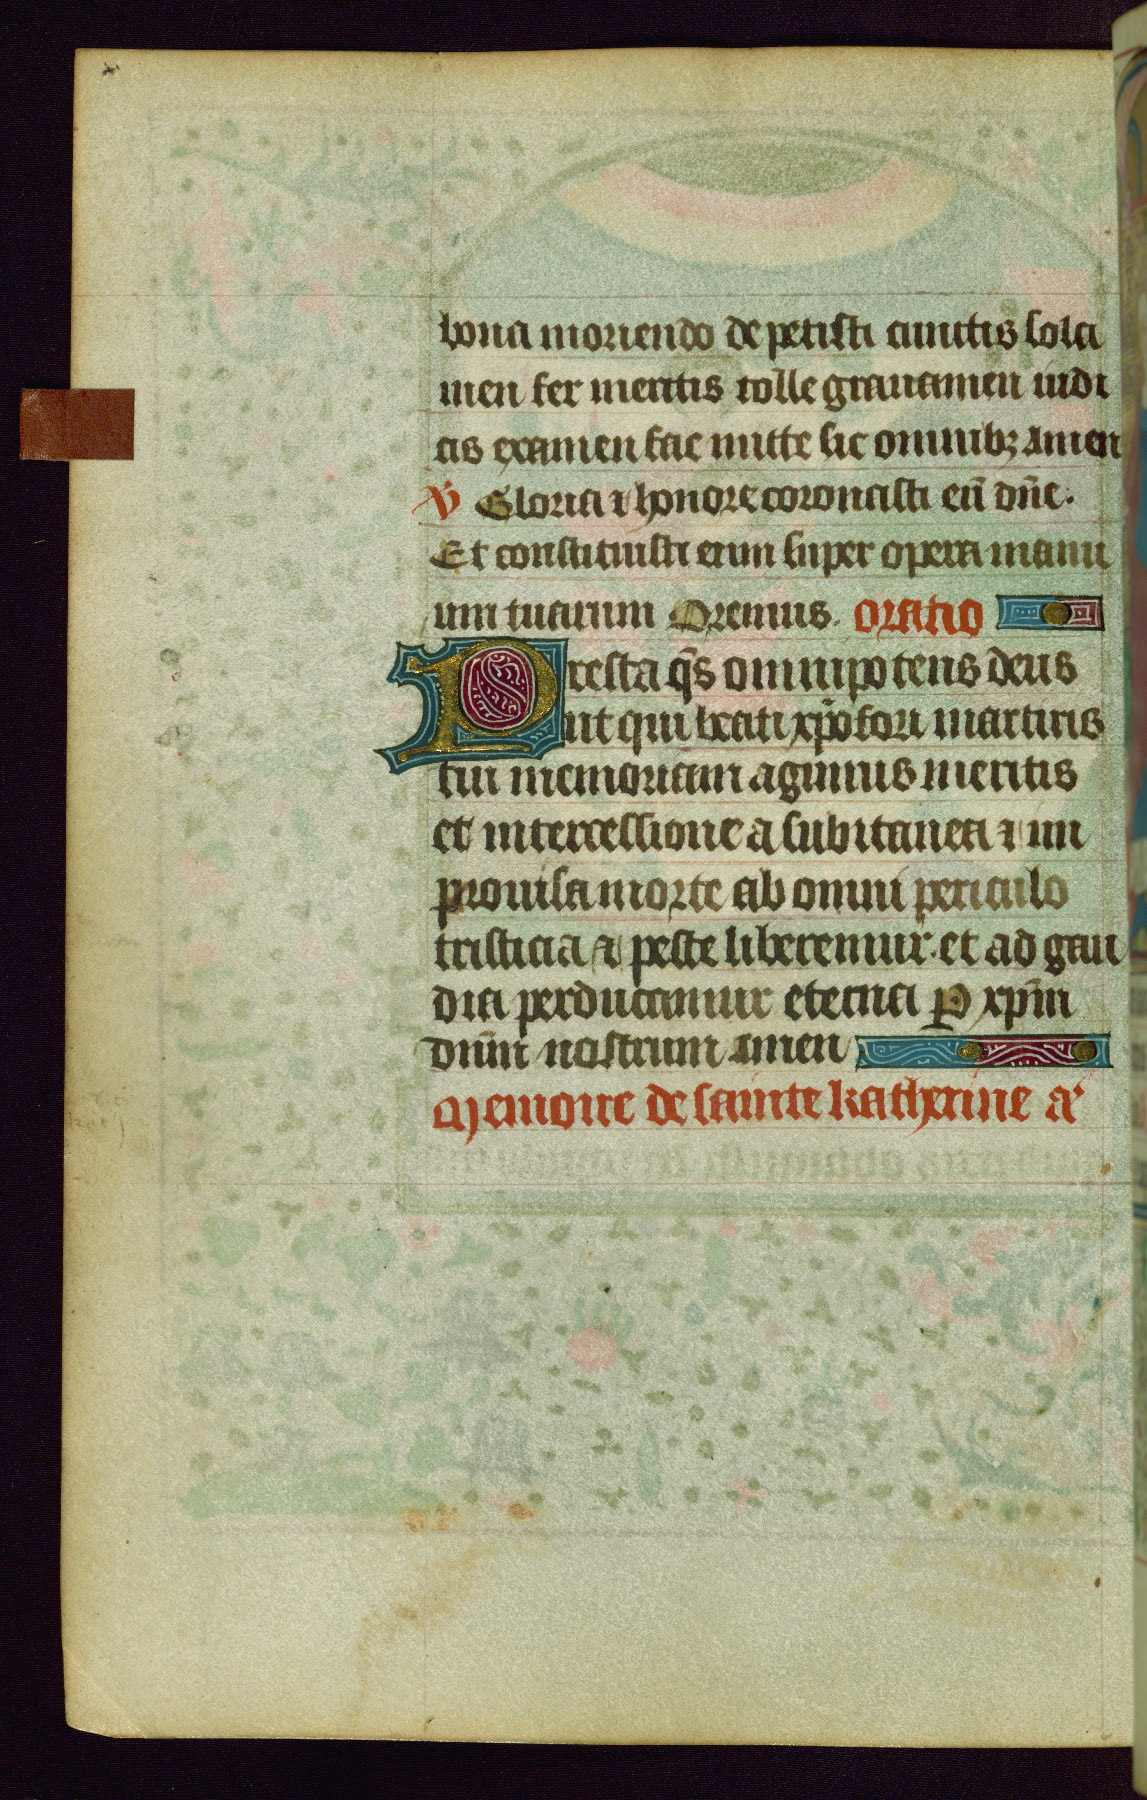 bona moriendo depetisti cunctis sola
men fer mentis tolle grauamen iudi
cis examen fac mitte sic omnibꝫ amen
℣ Gloria ⁊ honore coronasti eū dn̄e.
Et constituisti eum super opera manu
um tuarum Oremus. oratio
Presta q̄s omnipotens deus
ut qui beati xp̄ofori martiris
tui memoriam agimus meritis
et intercessione a subitanea ⁊ im
prouisa morte ab omni periculo
tristicia ⁊ peste liberemur. et ad gau
dia perducamur eterna P xp̄m
dn̄m nostrum amen
Memoire de sainte katherine aͬ